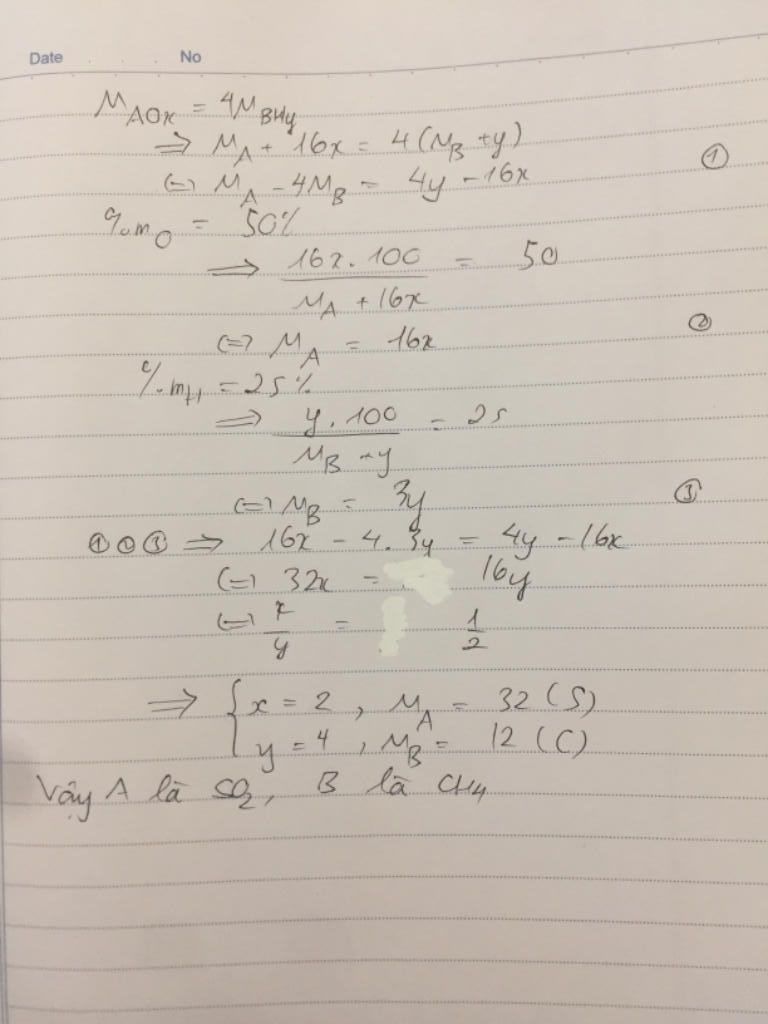 Date No
M_AOx = 4M_BHy
⇒ M_A + 16x = 4(M_B + y)
⇔ M_A - 4M_B = 4y - 16x ①
%m_O = 50%
⇒ 16x.100 / (M_A + 16x) = 50
⇔ M_A = 16x ②
%m_H = 25%
⇒ y.100 / (M_B + y) = 25
⇔ M_B = 3y ③
①②③ ⇒ 16x - 4.3y = 4y - 16x
⇔ 32x = 16y
⇔ x/y = 1/2
⇒ { x = 2, M_A = 32 (S)
y = 4, M_B = 12 (C)
Vậy A là SO₂, B là CH₄